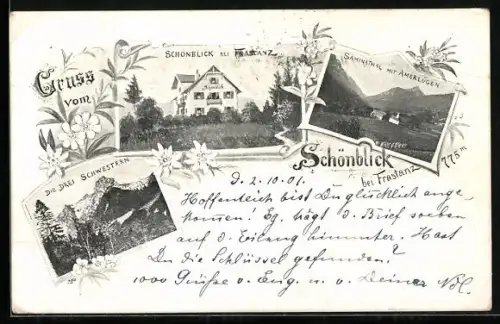 Gruss
vom
SCHÖNBLICK BEI FRASTANZ
SAMINATHAL MIT AMERLÜGEN
DIE DREI SCHWESTERN
Schönblick
bei Frastanz 775 m
D. 2.10.01.
Hoffentlich bist Du glücklich ange-
kommen! trägt d. Brief soeben
auf d. Eilzug hinunter. Hast
Du die Schlüssel gefunden?
1000 Grüße v. Eug. u. v. Deiner